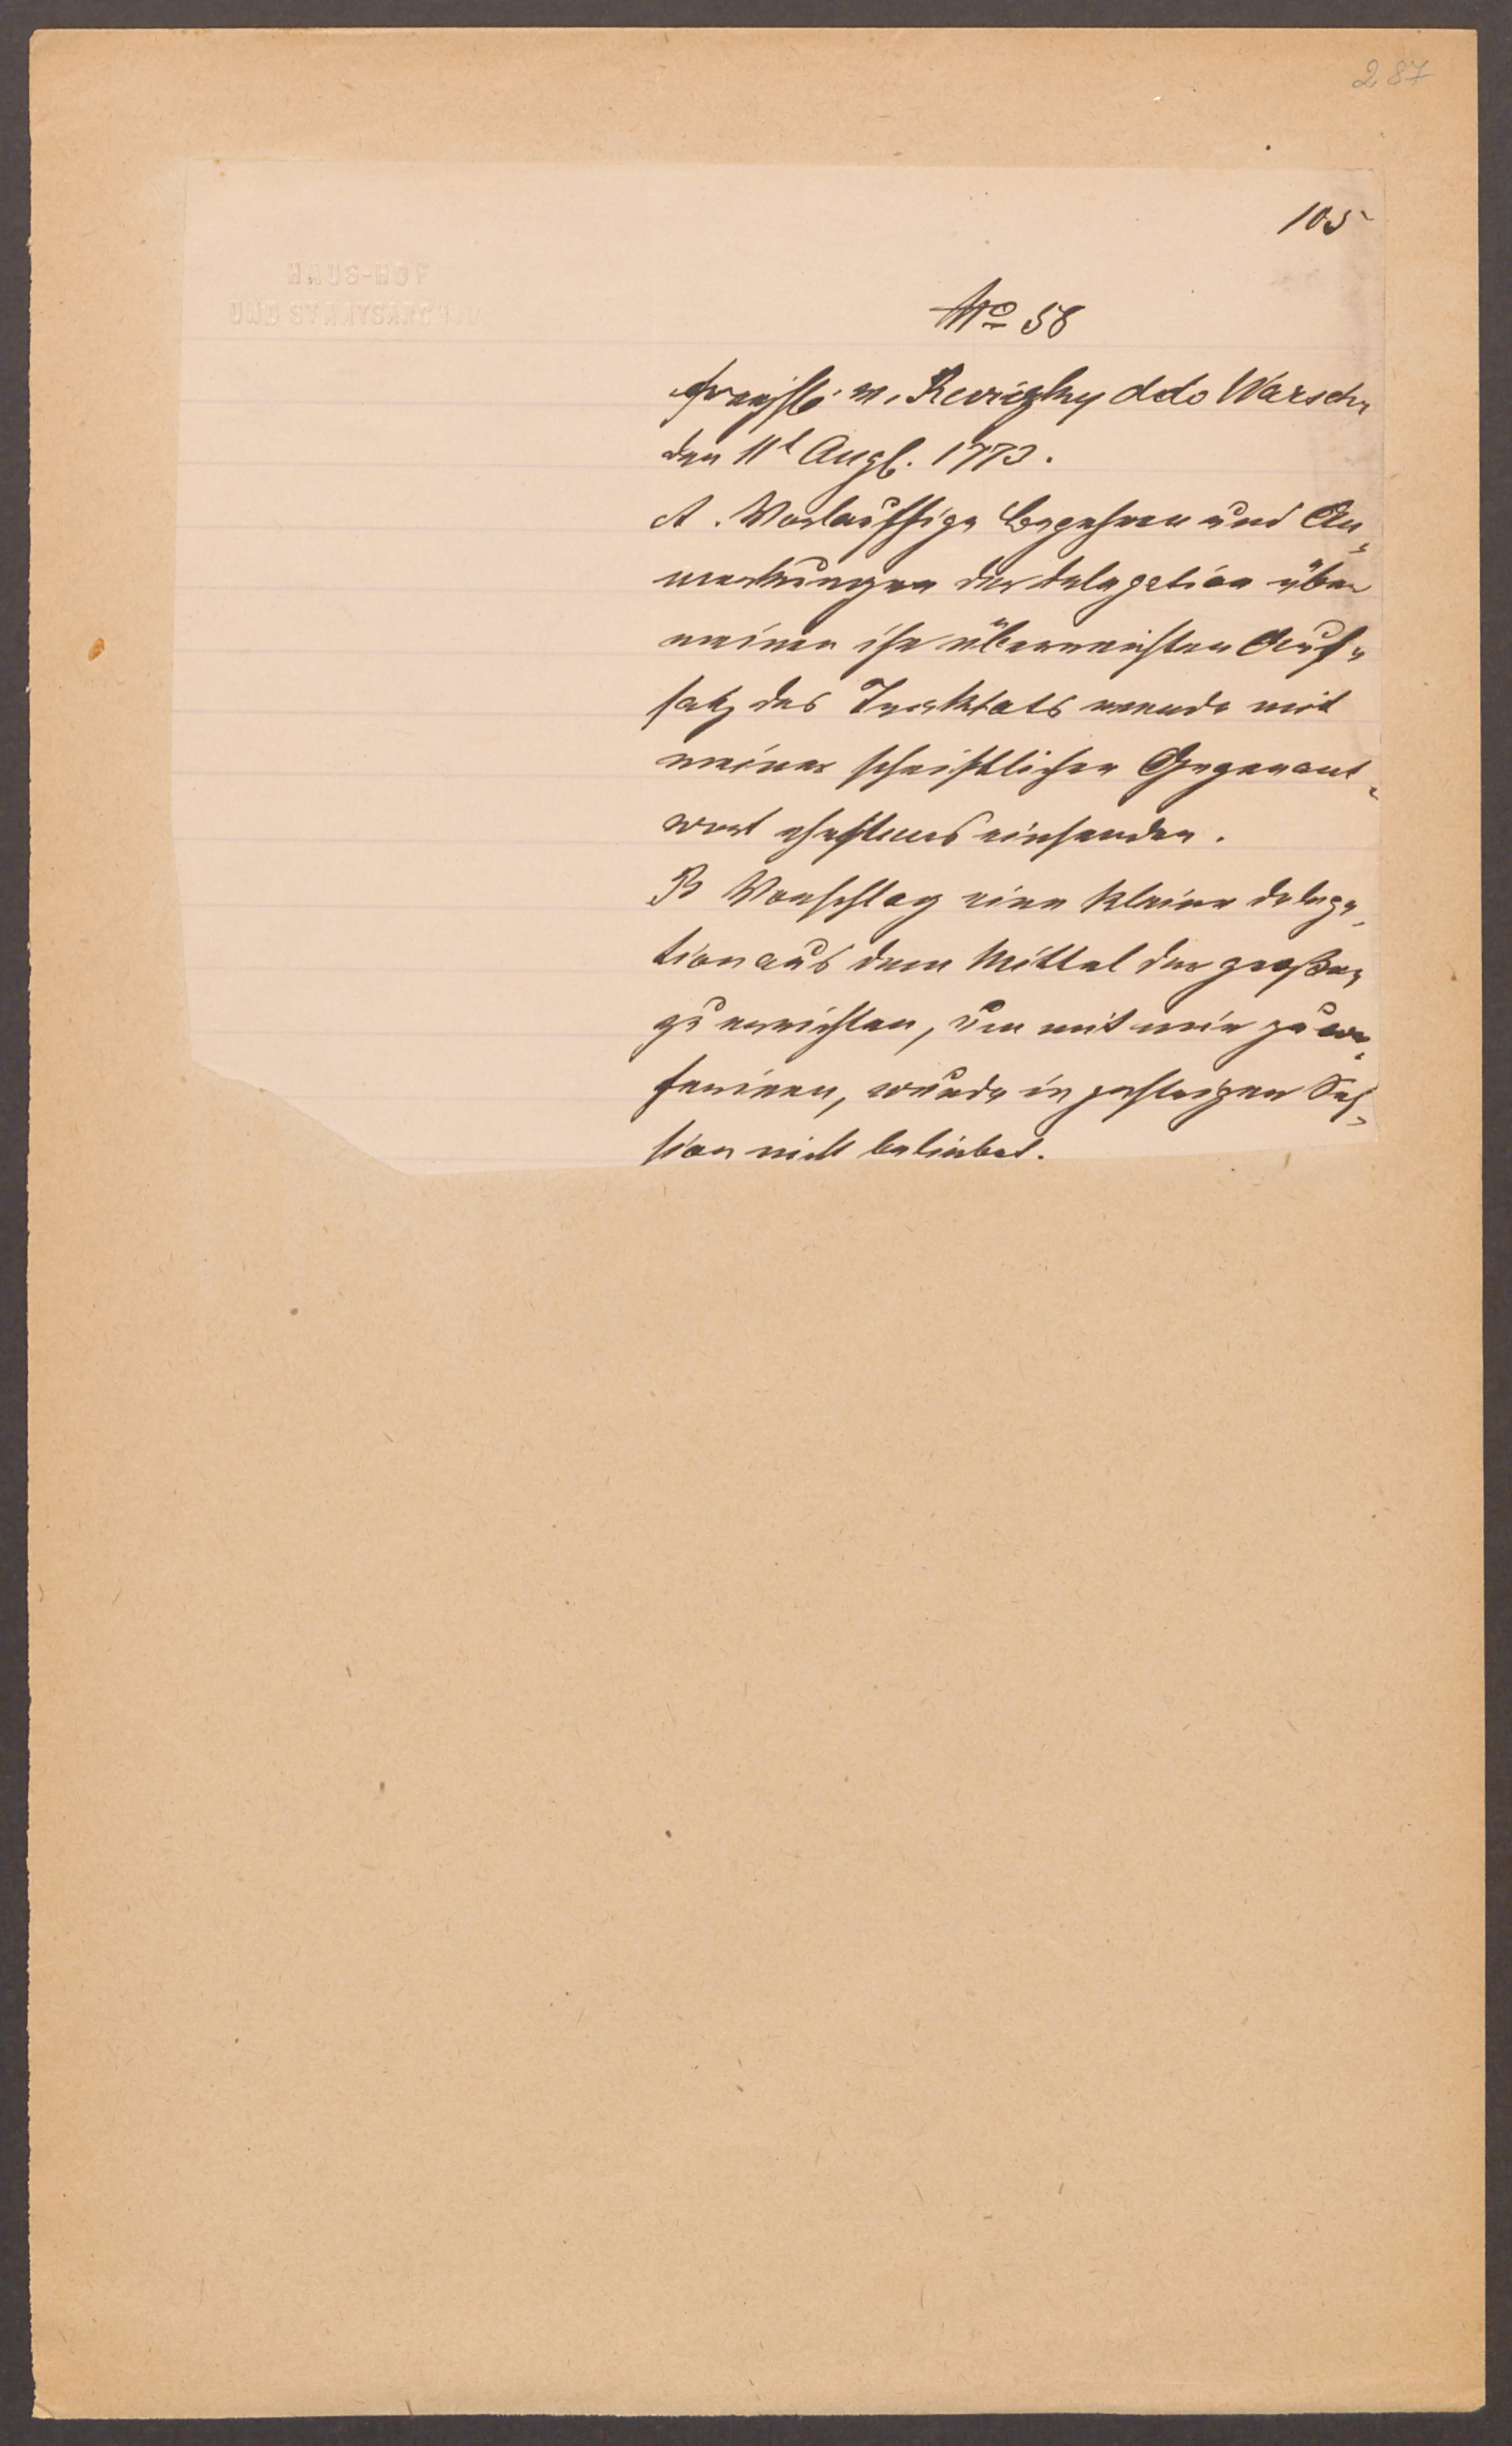 287
105
HAUS-HOF
UND STAATSARCHIV
No 58
Freyh. v. Reviczky ddo Warsch.
den 11t Augt. 1773.
A. Vorlauffige Begehren und An„
merkungen der delegation über
meinen ihr überreichten Auf„
satz des Tracktats werde mit
meiner schriftlichen Gegenant„
wort ehestens einsenden.
B Vorschlag eine kleine delega„
tion aus dem Mittel der großen
zu errichten, um mit mir zu con„
feriren, wurde in gestrigen Ses„
sion nicht beliebet.